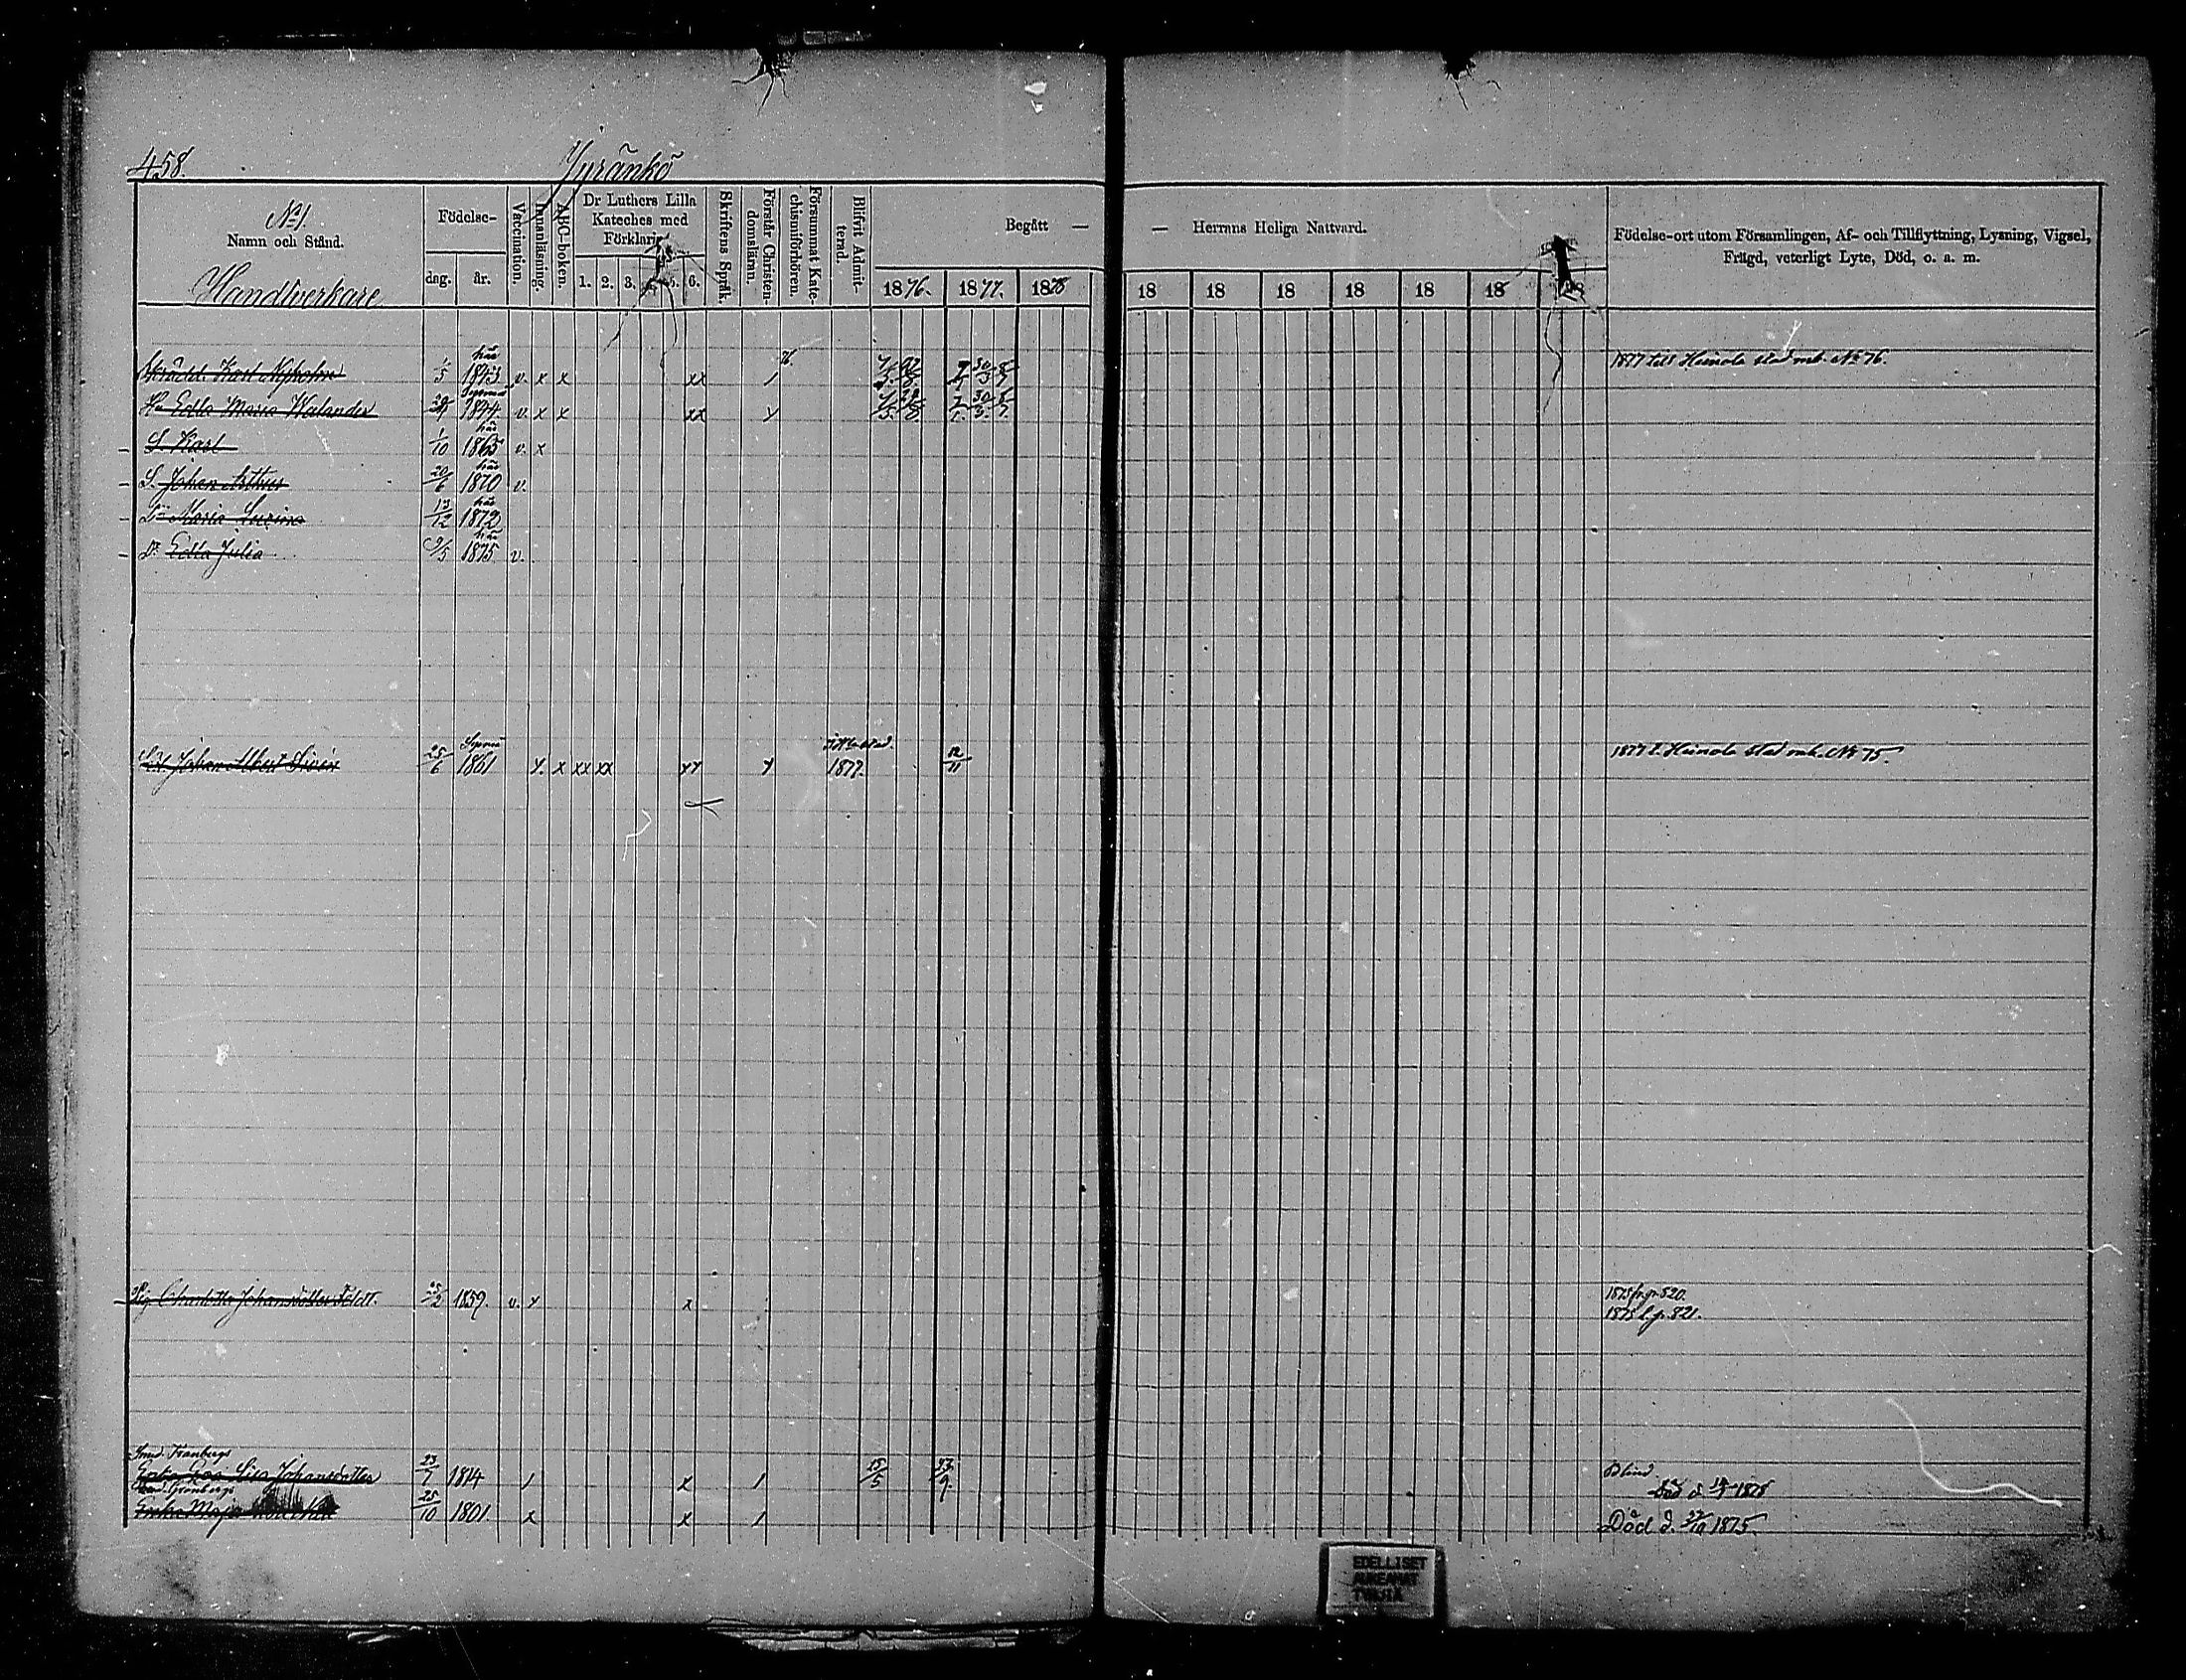 458.
Jyränkö
No 1.
Namn och Stånd.
Handtverkare
Födelse-
dag. år.
Vaccination.
Innanläsning.
ABC-boken.
Dr Luthers Lilla
Kateches med
Förklaring
1. 2. 3. 5. 6.
Skriftens Språk.
Förstår Christen-
domsläran.
Försummat Kate-
chismiförhören.
Blifvit Admit-
terad.
Begått —
1876. 1877. 1878
— Herrans Heliga Nattvard.
18 18 18 18 18 18 18
Födelse-ort utom Församlingen, Af- och Tillflyttning, Lysning, Vigsel,
Frägd, veterligt Lyte, Död, o. a. m.
här
76
Skrädd. Karl Nyholm 1/5 1843 v. x x xx / 1877 till Heinola stad mb. No 76.
Sysmä
Hu Edla Maria Welander 1844 v. x x xx
här
S. Karl 1/10 1865 v. x
här
S. Johan Arthur 20/6 1870 v.
här
Dr Maria 13/12 1872
här
Dr Edla Julia 9/5 1875 v.
Sysmä
Johan Albert Sirén 25/6 1861 x xx xx 1877. 12/11 1877 t. Heinola stad mb. No 75.
Pig. Charlotta Johansdotter 25/2 1859. v. x 1875 fr. p. 820.
1875 t. p. 821.
Smed.
Enka Lisa Johansdotter 23/7 1814 / x / 23/9. Blind.
Död d. 1878
Enka Maja 25/10 1801 x x / Död d. 22/10 1875.
EDELLISET